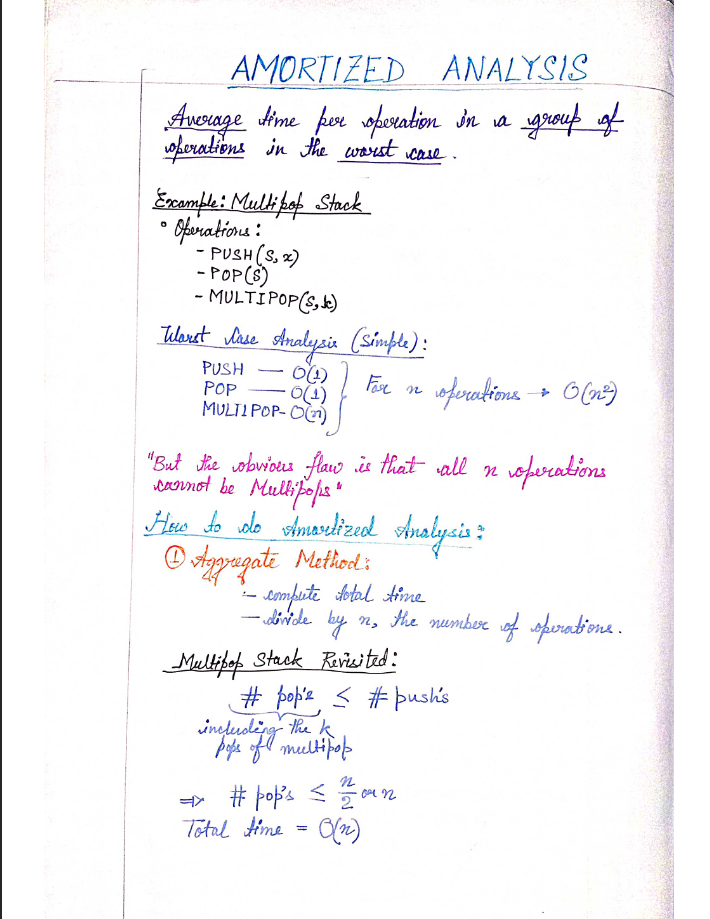 AMORTIZED ANALYSIS
Average time per operation in a group of
operations in the worst case.
Example: Multipop Stack
° Operations:
- PUSH(S, x)
- POP(S)
- MULTIPOP(S, k)
Worst Case Analysis (Simple):
PUSH — O(1)
POP — O(1)
MULTIPOP- O(n)
For n operations → O(n²)
"But the obvious flaw is that all n operations
cannot be Multipops"
How to do Amortized Analysis:
① Aggregate Method:
- compute total time
- divide by n, the number of operations.
Multipop Stack Revisited:
# pop's ≤ # push's
including the k
pops of multipop
⇒ # pop's ≤ n/2 or n
Total time = O(n)